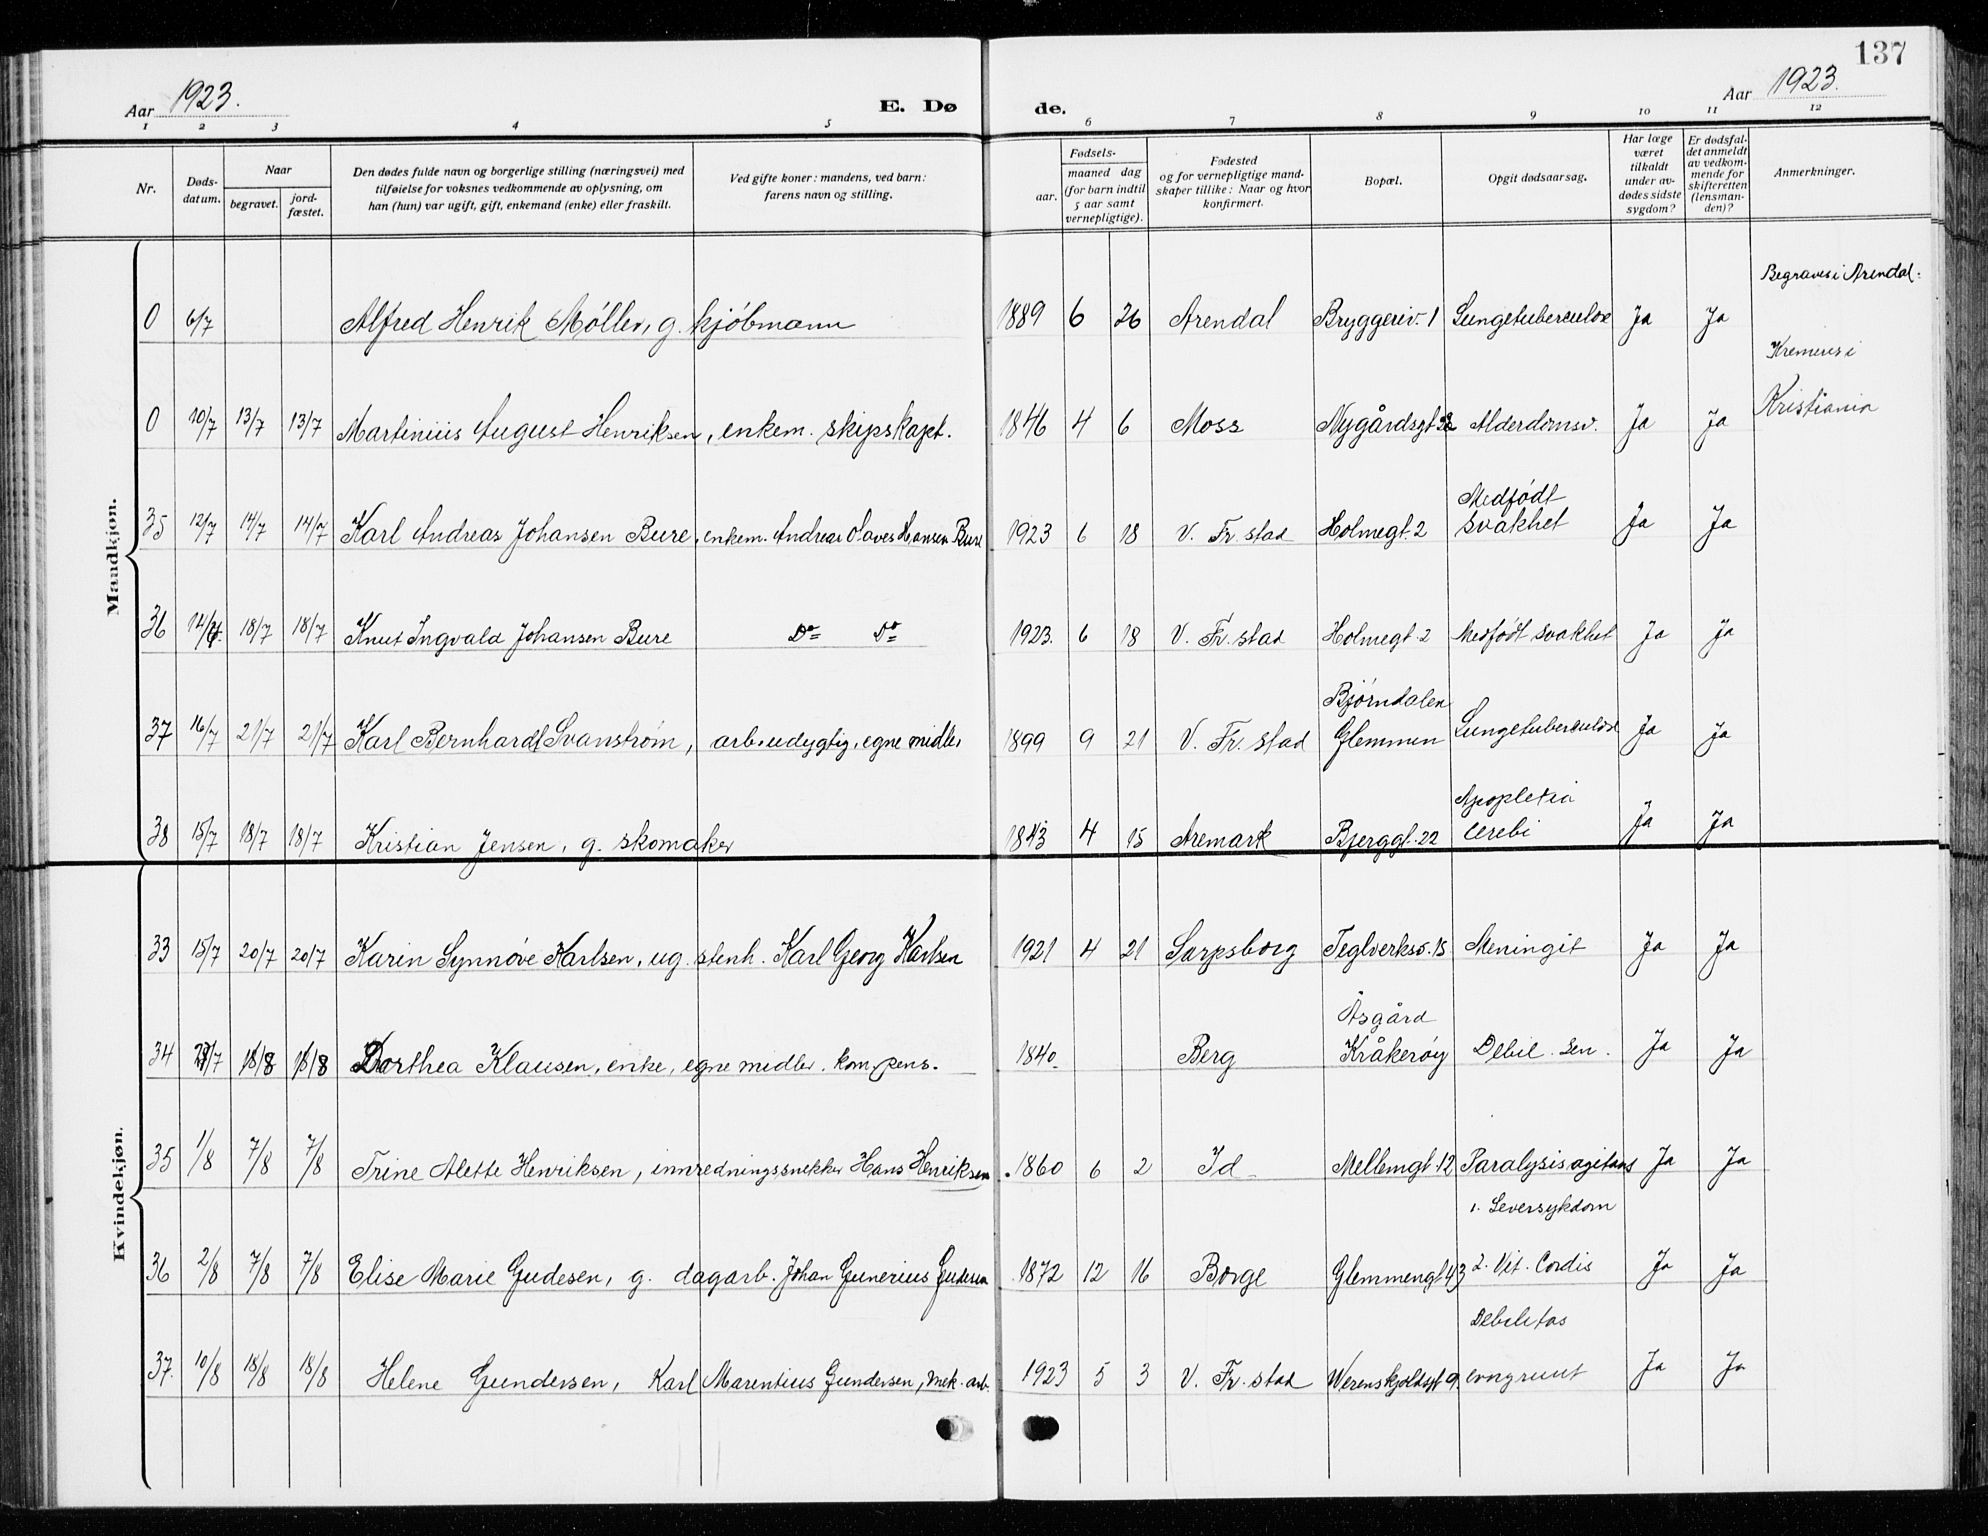 137
Aar 1923.
E. Døde.
Aar 1923.
1 2 3 4 5 6 7 8 9 10 11 12
Nr.
Dødsdatum.
Naar
begravet.
jordfæstet.
Den dødes fulde navn og borgerlige stilling (næringsvei) med
tilføielse for voksnes vedkommende av oplysning, om
han (hun) var ugift, gift, enkemand (enke) eller fraskilt.
Ved gifte koner: mandens, ved barn:
farens navn og stilling.
Fødsels-
aar.
maaned dag
(for barn indtil
5 aar samt
vernepligtige).
Fødested
og for vernepligtige mand-
skaper tillike: Naar og hvor
konfirmert.
Bopæl.
Opgit dødsaarsag.
Har læge
været
tilkaldt
under av-
dødes sidste
sygdom?
Er dødsfal-
det anmeldt
av vedkom-
mende for
skifteretten
(lensman-
den)?
Anmerkninger.
Mandkjøn.
0 6/7 Alfred Henrik Möller, g. kjöbmann 1889 6 26 Arendal Bryggeriv. 1 Lungetuberculose Ja Ja Begraves i Arendal.
0 10/7 13/7 13/7 Martinius August Henriksen, enkem. skipskapt. 1846 4 6 Moss Nygårdsgt Alderdomsv. Ja Ja Kremeres i
Kristiania
35 12/7 14/7 14/7 Karl Andreas Johansen Bure, enkem. Andreas Olaves Hansen Bure 1923 6 18 V. Fr. stad Holmegt. 2 Medfødt
svakhet Ja Ja
36 14/7 18/7 18/7 Knut Ingvald Johansen Bure Do Do 1923. 6 18 V. Fr. stad Holmegt. 2 Medfødt svakhet Ja Ja
37 16/7 21/7 21/7 Karl Bernhard Svanstrøm, arb.udygtig, egne midler 1899 9 21 V. Fr. stad Bjørndalen
Glemmen Lungetuberculose Ja Ja
38 15/7 18/7 18/7 Kristian Jensen, g. skomaker 1843 4 15 Aremark Bjerggt. 22 Apoplexia
Cerebi Ja Ja
Kvindekjøn.
33 15/7 20/7 20/7 Karin Synnøve Karlsen, ug. stenh. Karl Georg Karlsen 1921 4 21 Sarpsborg Teglverksv. 15 Meningit Ja Ja
34 Dorthea Klausen, enke, egne midler. kom. pens. 1840. Berg Åsgård
Kråkerøy Debil. Sen. Ja Ja
35 1/8 7/8 7/8 Trine Alette Henriksen, innredningssnekker Hans Henriksen 1860 6 2 Id Mellemgt. 12 Paralysis agitans Ja Ja
36 2/8 7/8 7/8 Elise Marie Gudesen, g. dagarb. Johan Gunerius Gudesen 1872 12 16 Borge Glemmengt 43 1. Leversykdom
2. Vit. Cordis Ja Ja
37. 10/8 18/8 18/8 Helene Gundersen, Karl Marentius Gundersen, mek. arb. 1923 5 3 V. Fr. stad Werenskjoldsgt 9. Debilitas
congruit Ja Ja